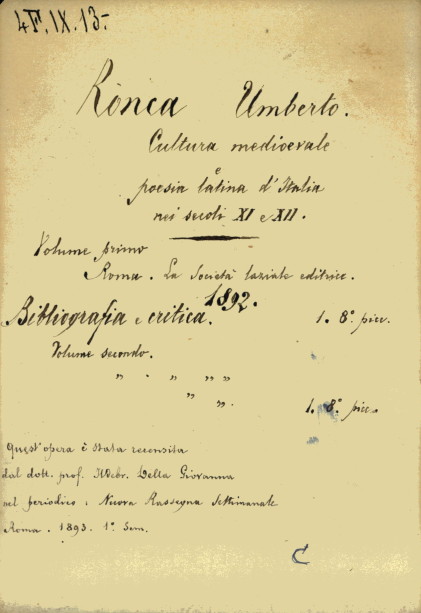 4F.IX.13-
Ronca Umberto.
Cultura medioevale
e
poesia latina d'Italia
nei secoli XI e XII.
Volume primo
Roma. La Società laziale editrice.
1892.
Bibliografia e critica. 1. 8° picc.
Volume secondo.
„ . „ „ „
„ „.
1. 8° picc.
Quest'opera è stata recensita
dal dott. prof. Ildebr. Della Giovanna
nel periodico: Nuova Rassegna Settimanale
Roma. 1893. 1° Sem.
C